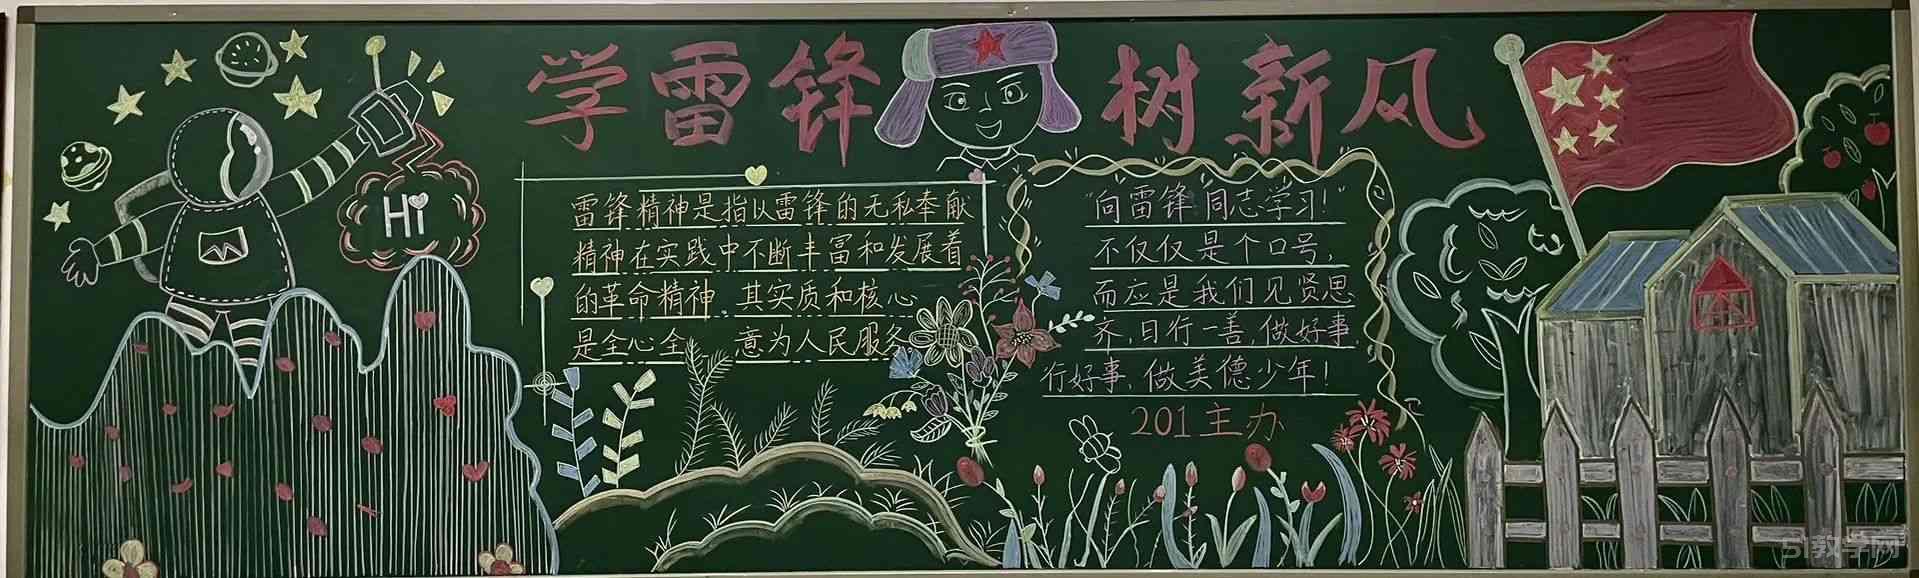 学雷锋 树新风
Hi
雷锋精神是指以雷锋的无私奉献
精神在实践中不断丰富和发展着
的革命精神.其实质和核心
是全心全意为人民服务
"向雷锋同志学习!"
不仅仅是个口号,
而应是我们见贤思
齐,日行一善,做好事,
行好事,做美德少年!
201主办
51教学网